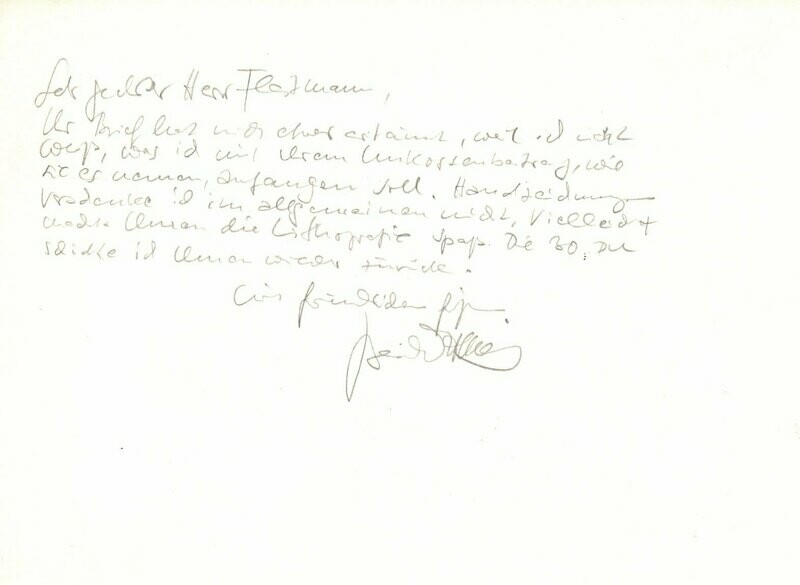 Sehr geehrter Herr Flessmann,
Ihr Brief hat mich etwas erstaunt, weil ich nicht
weiß, was ich mit Ihrem Unkostenbeitrag, wie
Sie es nennen, anfangen soll. Handzeichnungen
verschenke ich im allgemeinen nicht, vielleicht
macht Ihnen die Lithografie Spaß. Die 30,- DM
schicke ich Ihnen wieder zurück.
Mit freundlichen Grüßen